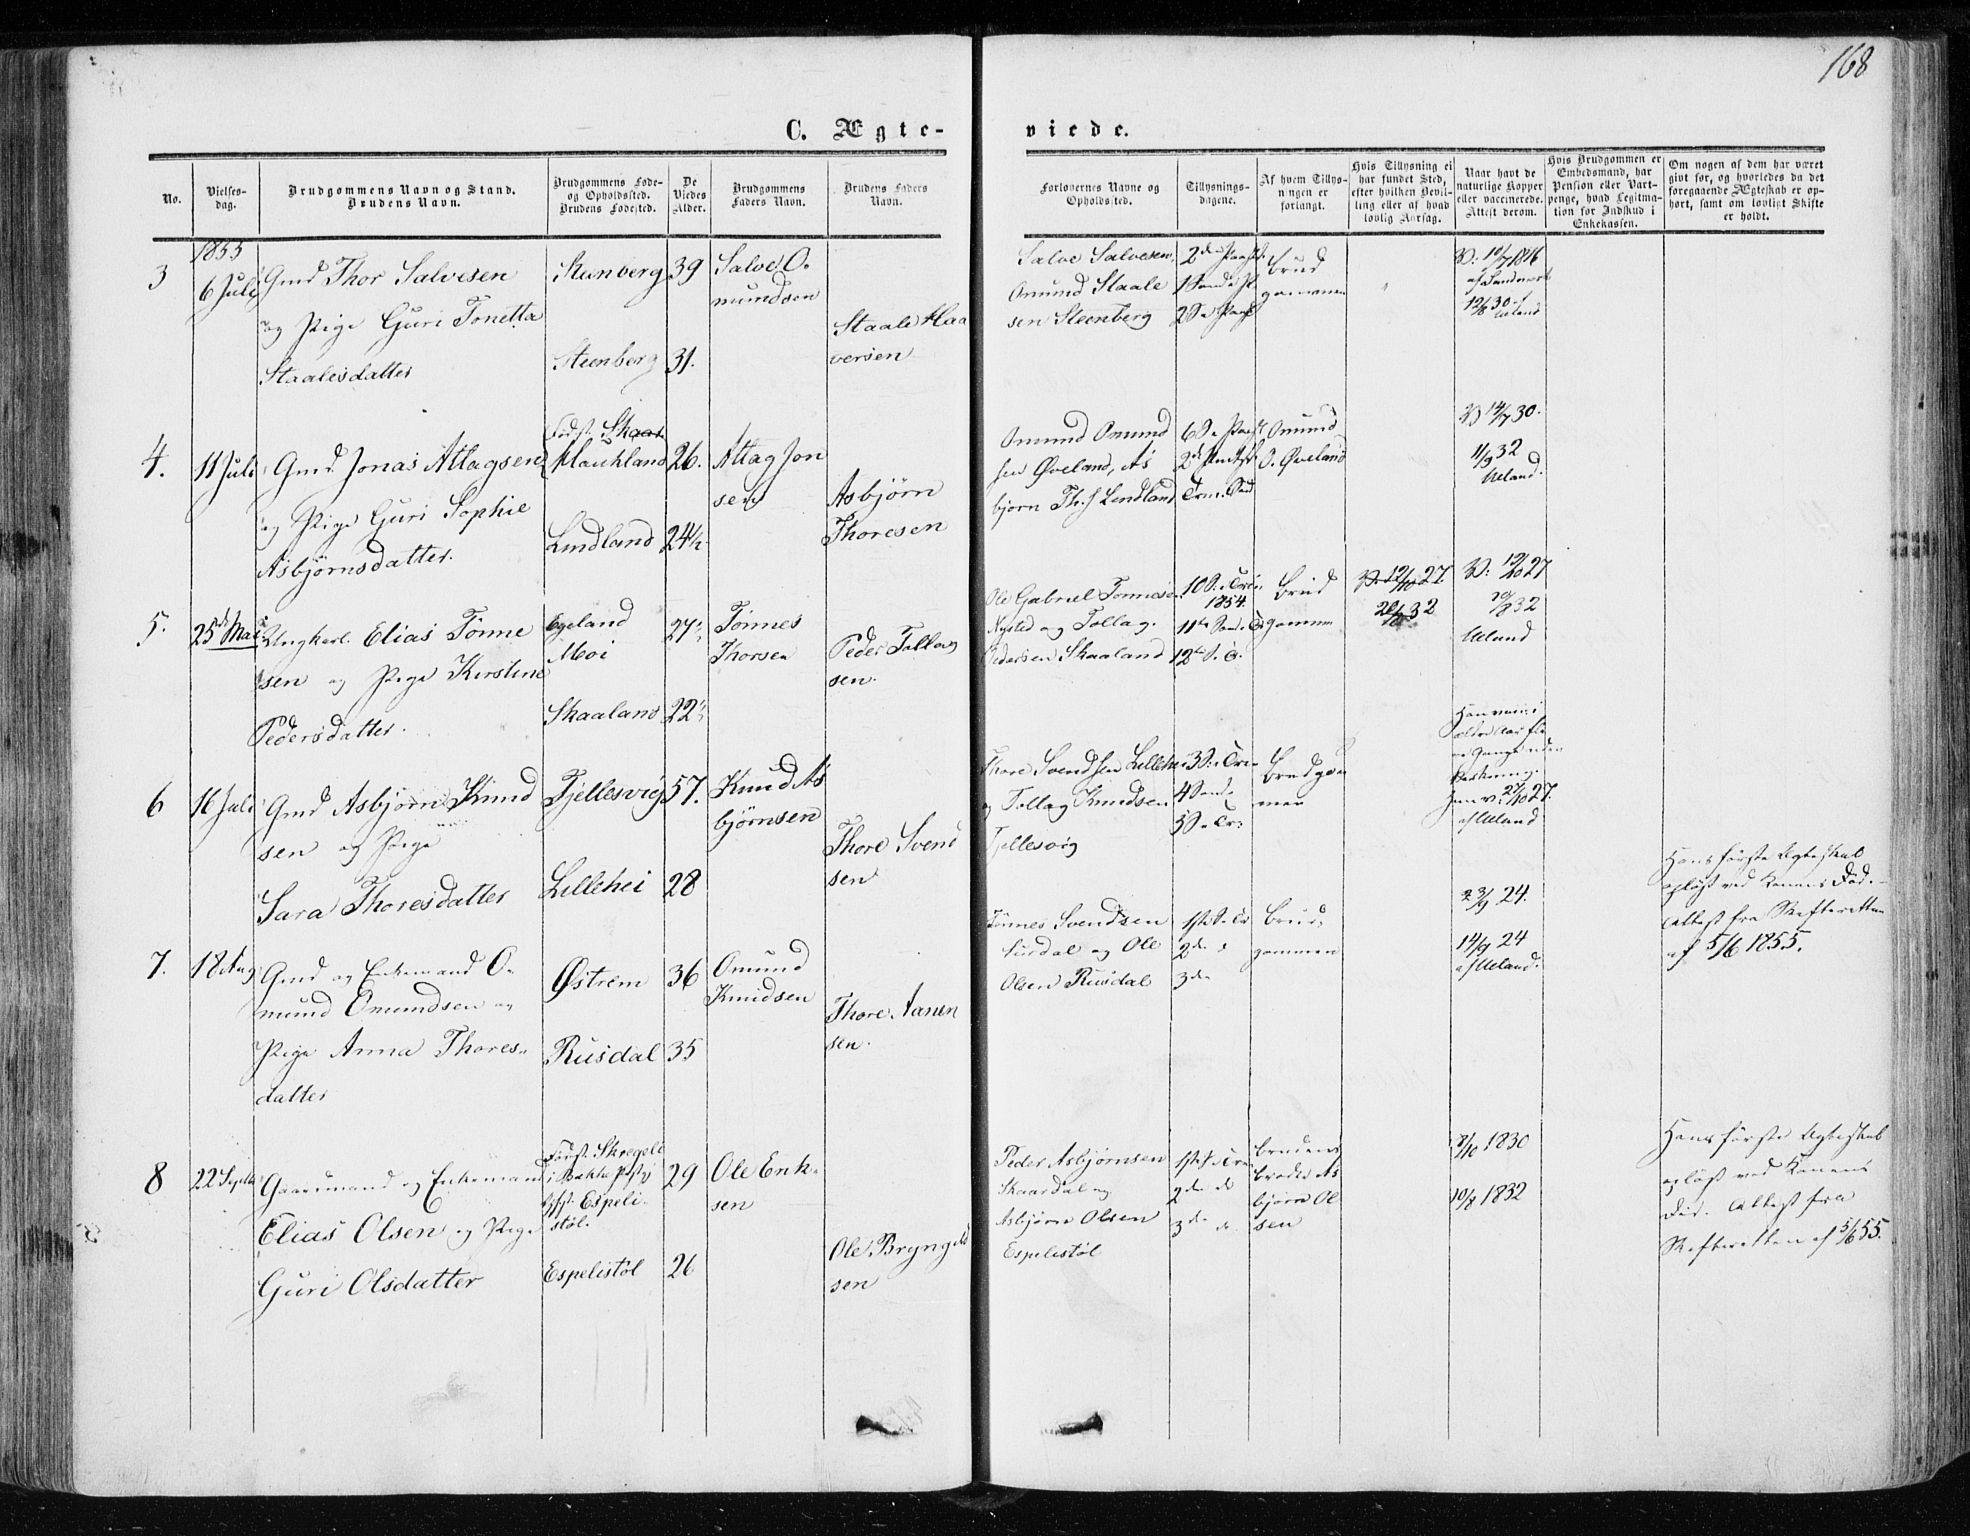 168
C. Ægte-
viede.
No.
Vielses-
dag.
Brudgommens Navn og Stand.
Brudens Navn.
Brudgommens Føde-
og Opholdssted.
Brudens Fødested.
De
Viedes
Alder.
Brudgommens
Faders Navn.
Brudens Faders
Navn.
Forlovernes Navne og
Opholdssted.
Tillysnings-
dagene.
Af hvem Tillys-
ningen er
forlangt.
Hvis Tillysning ei
har fundet Sted,
efter hvilken Bevil-
ling eller af hvad
lovlig Aarsag.
Naar havt de
naturlige Kopper
eller vaccinerede.
Attest derom.
Hvis Brudgommen er
Embedsmand, har
Pension eller Vart-
penge, hvad Legitima-
tion for Indskud i
Enkekassen.
Om nogen af dem har været
givt før, og hvorledes da det
foregaaende Ægteskab er op-
hørt, samt om lovligt Skifte
er holdt.
1855
3
6 Juli
Gmd Thor Salvesen
og Pige Guri Tonetta
Staalesdatter
Steenberg
Steenberg
39
31.
Salve O-
mundsen
Staale Haa
versen
Salve Salvesen,
Omund Staale
sen Steenberg
Brud
gommen
12/8 30 af
Ueland
4.
11 Juli
Gmd Jonas Atlagsen
og Pige Guri Sophie
Asbjørnsdatter.
Født Skaar
Haukland
Lindland
26.
24½
Atlag Jon
sen
Asbjørn
Thoresen
Omund Omund
sen Øveland, As
bjørn Th.s Lindland
Omund
O. Øveland
14/7 30.
11/9 32
Ueland.
5.
25de Mai
Ungkarl Elias Tønne
sen og Pige Kirstine
Pedersdatter.
Egeland
Moi
Skaaland
27½
22½
Tønnes
Thorsen
Peder Tollag
sen.
Ole Gabriel Tønnesen
Nysted og Tollag.
Pedersen Skaaland
1854.
Brud
gommen
12/10 27
Ueland
6
16 Juli
Gmd Asbjørn Knud
sen og Pige
Sara Thoresdatter
Fjellesvig
Lillehei
57.
28
Knud As
bjørnsen
Thore Svend
sen
Thore Svendsen Lillehei
og Tollag Knudsen
Fjellesvig
Brudgom
men
af Ueland
7.
18 Aug
Gmd og Enkemand O-
mund Omundsen og
Pige Anna Thores-
datter
Østrem
Rusdal
36
35
Omund
Knudsen
Thore Aanen
sen.
Tønnes Svendsen
Surdal og Ole
Olsen Rusdal
2de
3de
Brud-
gommen
23/9 24.
14/9 24
af Ueland.
Hans første Ægteskab
opløst ved Konens Død.
Attest fra Skifteretten
af 5/6 1855.
8
22 Septbr
Gaardmand og Enkemand
Elias Olsen og Pige
Guri Olsdatter
Født Skregeli
i Bakke Pstgj
Espeli-
støl.
Espelistøl
29
26
Ole Erik-
sen
Ole Bryngels
sen
Peder Asbjørnsen
Skaardal og
Asbjørn Olsen
Espelistøl
2de do
3de do
Brudens
broder As
bjørn Ol
sen
8/10 1830
10/8 1832
Hans første Ægteskab
opløst ved Konens
Død. Attest fra
Skifteretten af 5/6 55.